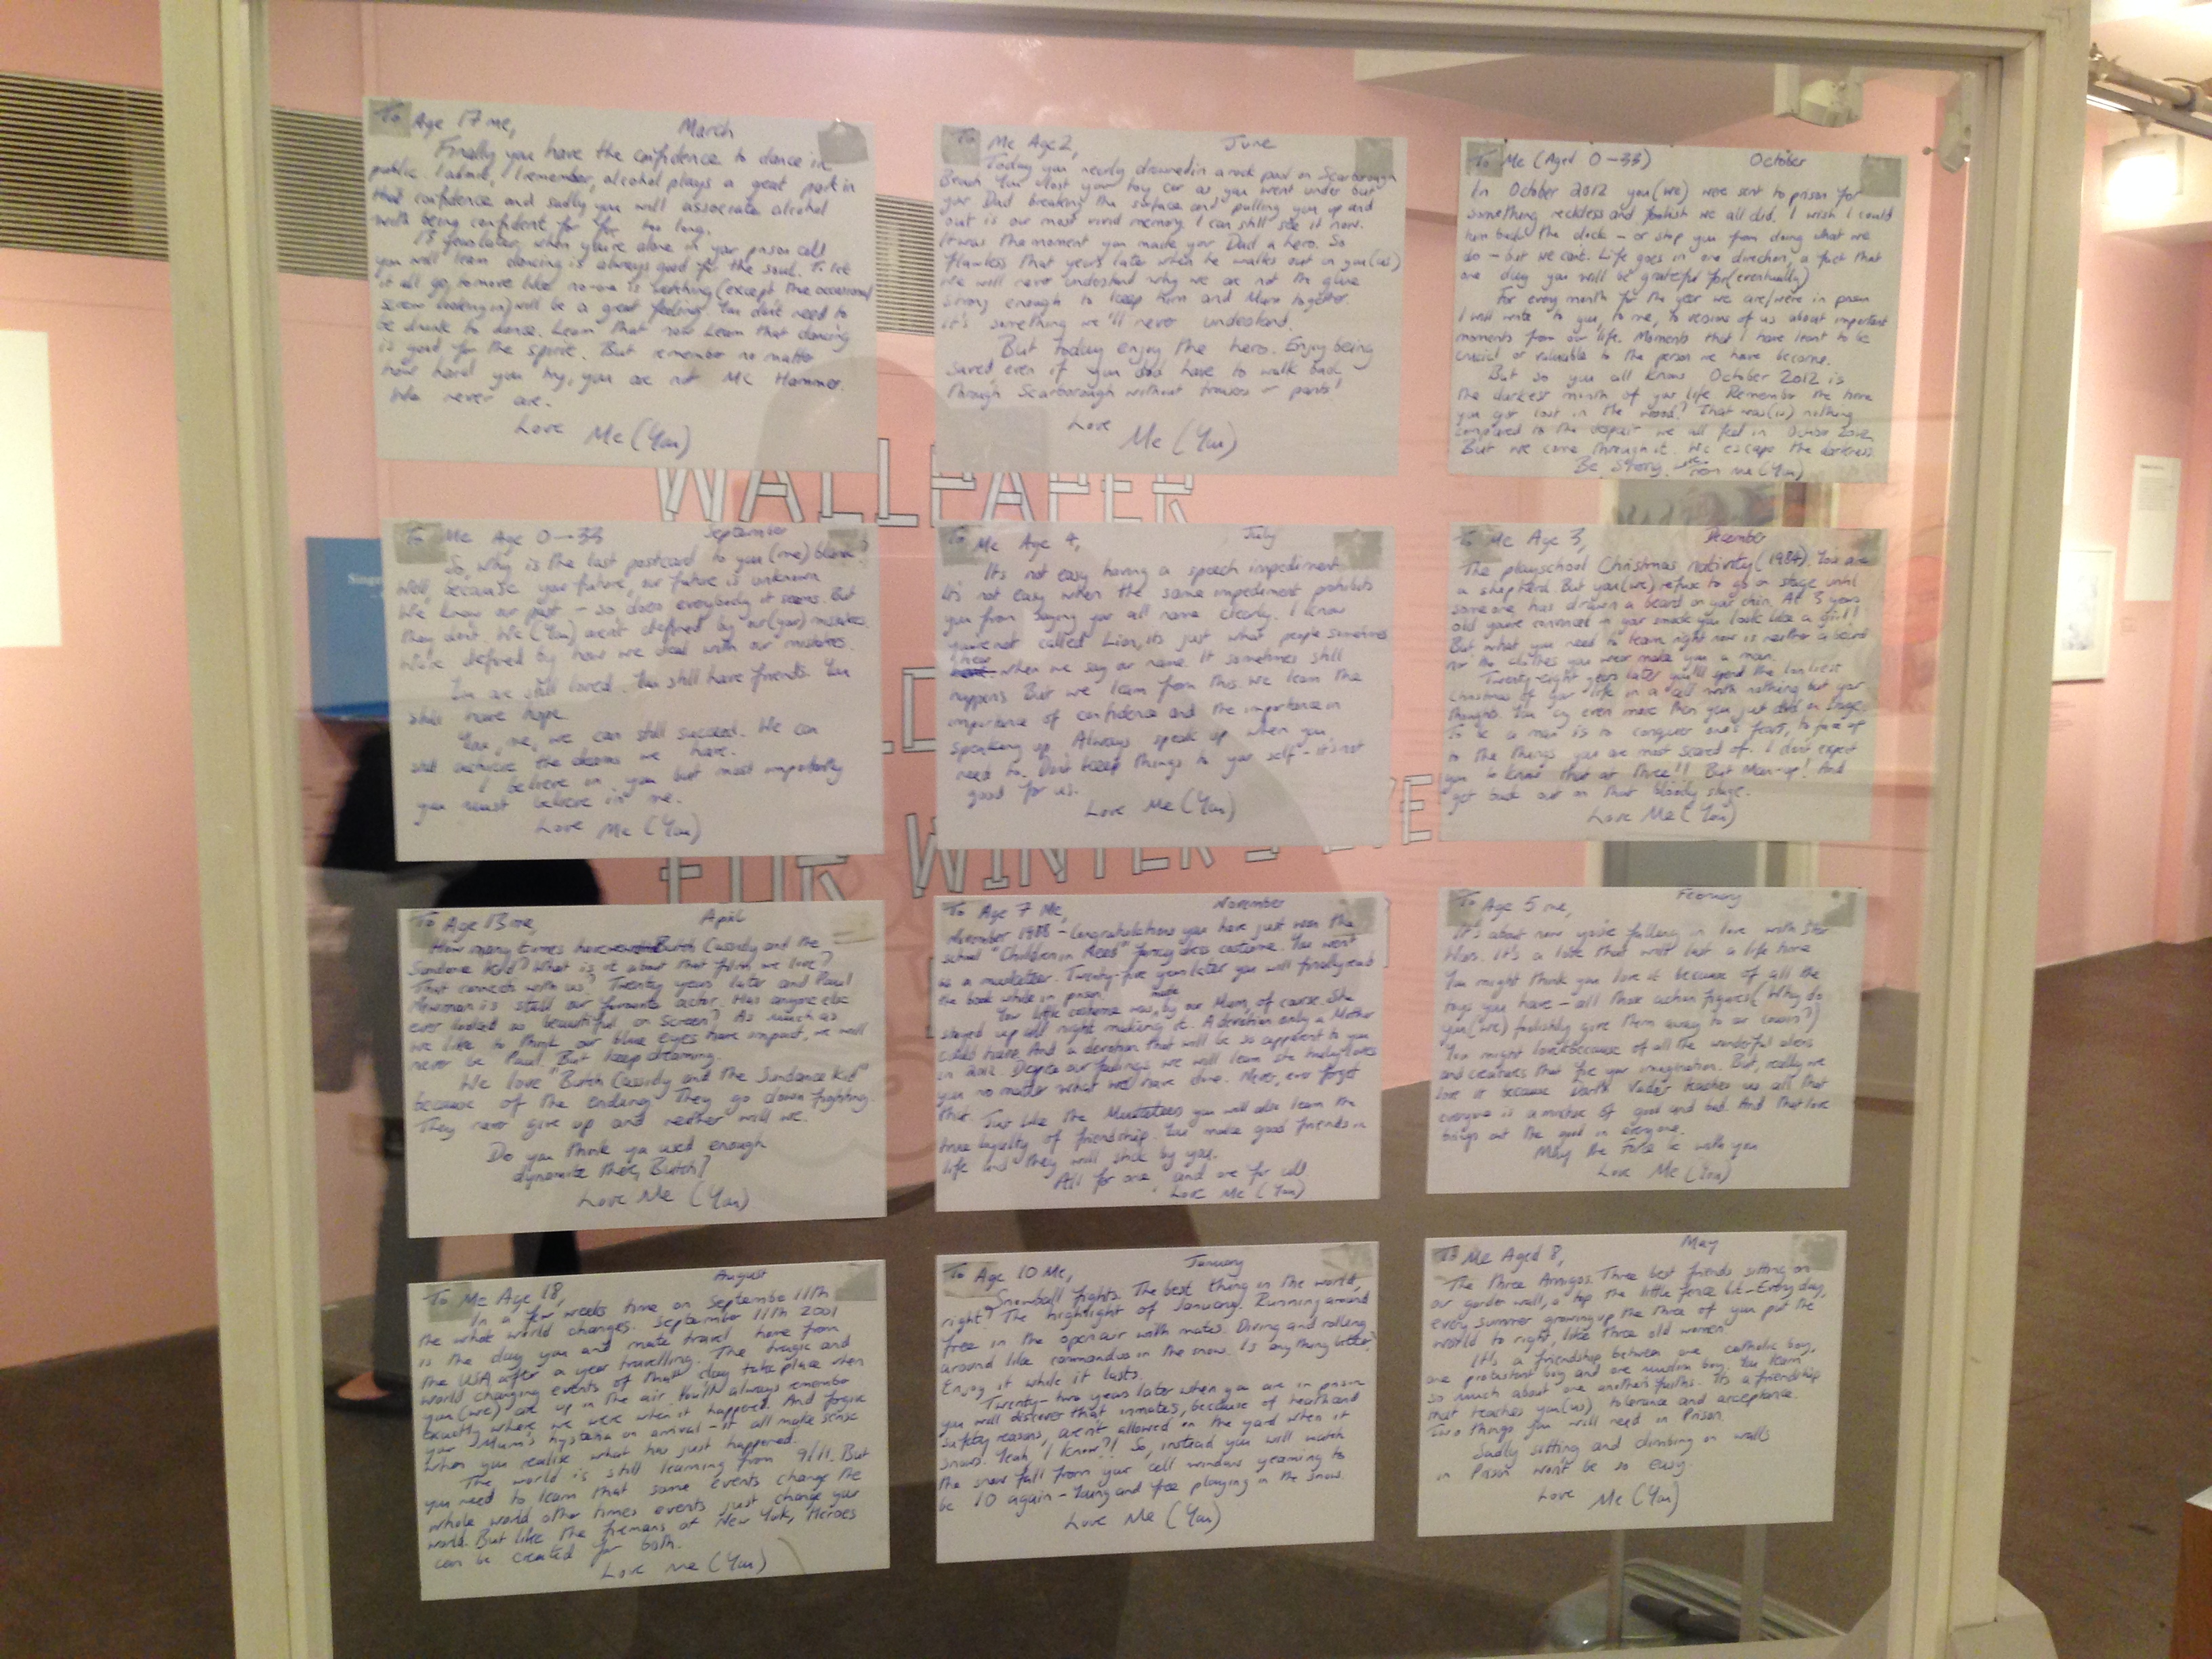 To Age 17 me, March
Finally you have the confidence to dance in
public. I admit, I remember, alcohol plays a great part in
that confidence and sadly you will associate alcohol
with being confident for far too long.
13 years later, when you're alone in your prison cell
you will learn dancing is always good for the soul. To let
it all go, to move like no-one is watching (except the occasional
screw looking in) will be a great feeling. You don't need to
be drunk to dance. Learn that now. Learn that dancing
is good for the spirit. But remember no matter
how hard you try, you are not MC Hammer.
We never are.
Love Me (You)
To Me Age 2, June
Today you nearly drowned in a rock pool on Scarborough
Beach. You lost your toy car as you went under but
your Dad breaking the surface and pulling you up and
out is our most vivid memory. I can still see it now.
It was the moment you made your Dad a hero. So
flawless that years later when he walks out on you (us)
we will never understand why we are not the glue
strong enough to keep him and Mum together.
It's something we'll never understand.
But today enjoy the hero. Enjoy being
saved, even if you did have to walk back
through Scarborough without trousers or pants!
Love
Me (You)
To Me (Aged 0-33) October
In October 2012 you (we) were sent to prison for
something reckless and foolish we all did. I wish I could
turn back the clock - or stop you from doing what we
do - but we can't. Life goes in one direction, a fact that
one day you will be grateful for (eventually)
For every month for the year we are/were in prison
I will write to you, to me, to versions of us about important
moments from our life. Moments that I have learnt to be
crucial or valuable to the person we have become.
But so you all know October 2012 is
the darkest month of your life. Remember the time
you got lost in the wood? That was (is) nothing
compared to the despair we all feel in October 2012.
But we come through it. We escape the darkness.
Be Strong. from me (You)
WALLPAPER
To Me Age 0-33 September
So, why is the last postcard to you (me) blank?
Well, because your future, our future is unknown
We know our past - so does everybody it seems. But
they don't. We (You) aren't defined by our (your) mistakes.
We're defined by how we deal with our mistakes.
You are still loved. You still have friends. You
still have hope.
You, me, we can still succeed. We can
still achieve the dreams we have.
I believe in you but most importantly
you must believe in me.
Love Me (You)
To Me Age 4, July
It's not easy having a speech impediment
It's not easy when the same impediment prohibits
you from saying your all name clearly. I know
you're not called Lion, it's just what people sometimes
hear when we say our name. It sometimes still
happens. But we learn from this. We learn the
importance of confidence and the importance in
speaking up. Always speak up when you
need to. Don't keep things to your self - it's not
good for us.
Love Me (You)
To Me Age 3, December
The playschool Christmas nativity (1984). You are
a shepherd. But you (we) refuse to go on stage until
someone has drawn a beard on your chin. At 3 years
old you're convinced in your smock you look like a girl!!
But what you need to learn right now is neither a beard
nor the clothes you wear make you a man.
Twenty-eight years later you'll spend the lonliest
Christmas of your life in a cell with nothing but your
thoughts. You cry even more then you just did on stage.
To be a man is to conquer one's fears, to face up
to the things you are most scared of. I don't expect
you to know that at three!! But Man-up! And
get back out on that bloody stage.
Love Me (You)
FOR WINTER'S
To Age 13 me, April
How many times have Butch Cassidy and the
Sundance Kid? What is it about that film we love?
That connects with us? Twenty years later and Paul
Newman is still our favourite actor. Has anyone else
ever looked so beautiful on screen? As much as
we like to think our blue eyes have impact, we will
never be Paul. But keep dreaming.
We love "Butch Cassidy and the Sundance Kid"
because of the ending. They go down fighting.
They never give up and neither will we.
Do you think you used enough
dynamite there, Butch?
Love Me (You)
To Age 7 Me, November
November 1988 - Congratulations you have just won the
school "Children in Need" fancy dress costume. You went
as a musketeer. Twenty-five years later you will finally read
the book while in prison!
Your little costume was made by our Mum, of course. She
stayed up all night making it. A devotion only a Mother
could have. And a devotion that will be so apparent to you
in 2012. Despite our failings we will learn she truly loves
you no matter what we'll have done. Never, ever forget
that. Just like the Musketeers you will also learn the
true loyalty of friendship. You make good friends in
life and they will stick by you.
All for one, and one for all
Love Me (You)
To Age 5 me, February
It's about now you're falling in love with Star
Wars. It's a love that will last a life time.
You might think you love it because of all the
toys you have - all those action figures (Why do
you (we) foolishly give them away to our cousin?)
You might love because of all the wonderful aliens
and creatures that fire your imagination. But, really we
love it because Darth Vader teaches us all that
everyone is a mixture of good and bad. And that love
brings out the good in everyone.
May the Force be with you
Love Me (You)
To Me Age 18, August
In a few weeks time on September 11th
the whole world changes. September 11th 2001
is the day you and mate travel home from
the USA after a year travelling. The tragic and
world changing events of that day take place when
you (we) are up in the air. You'll always remember
exactly where we were when it happened. And forgive
your Mum's hysteria on arrival - it all make sense
when you realise what has just happened.
The world is still learning from 9/11. But
you need to learn that some events change the
whole world other times events just change your
world. But like the firemans of New York, Heroes
can be created for both.
Love Me (You)
To Age 10 Me, January
Snowball fights. The best thing in the world,
right? The highlight of January. Running around
free in the open air with mates. Diving and rolling
around like commandos in the snow. Is anything better?
Enjoy it while it lasts.
Twenty-two years later when you are in prison
you will discover that inmates, because of health and
safety reasons, aren't allowed on the yard when it
snows. Yeah, I know?! So, instead you will watch
the snow fall from your cell window yearning to
be 10 again - Young and free playing in the snow.
Love Me (You)
To Me Aged 8, May
The Three Amigos. Three best friends sitting on
our garden wall, a top the little fence bit - Every day,
every summer growing up the three of you put the
world to right, like three old women
It's a friendship between one catholic boy,
one protestant boy and one muslim boy. You learn
so much about one another's faiths. Its a friendship
that teaches you (us) tolerance and acceptance.
Two things you will need in Prison.
Sadly sitting and climbing on walls
in Prison won't be so easy.
Love Me (You)